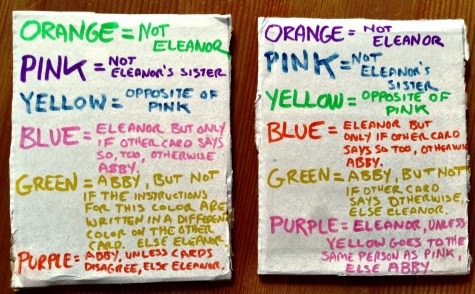 ORANGE = NOT
ELEANOR
PINK = NOT
ELEANOR'S SISTER
YELLOW = OPPOSITE OF
PINK
BLUE = ELEANOR BUT ONLY
IF OTHER CARD SAYS
SO, TOO, OTHERWISE
ABBY.
GREEN = ABBY, BUT NOT
IF THE INSTRUCTIONS
FOR THIS COLOR ARE
WRITTEN IN A DIFFERENT
COLOR ON THE OTHER
CARD. ELSE ELEANOR.
PURPLE = ABBY, UNLESS CARDS
DISAGREE, ELSE ELEANOR.
ORANGE = NOT
ELEANOR
PINK = NOT
ELEANOR'S
SISTER
YELLOW =
OPPOSITE OF
PINK
BLUE = ELEANOR BUT
ONLY IF OTHER CARD
SAYS SO TOO, OTHERWISE
ABBY.
GREEN = ABBY, BUT NOT
IF OTHER CARD
SAYS OTHERWISE,
ELSE ELEANOR.
PURPLE = ELEANOR, UNLESS
YELLOW GOES TO THE
SAME PERSON AS PINK,
ELSE ABBY.